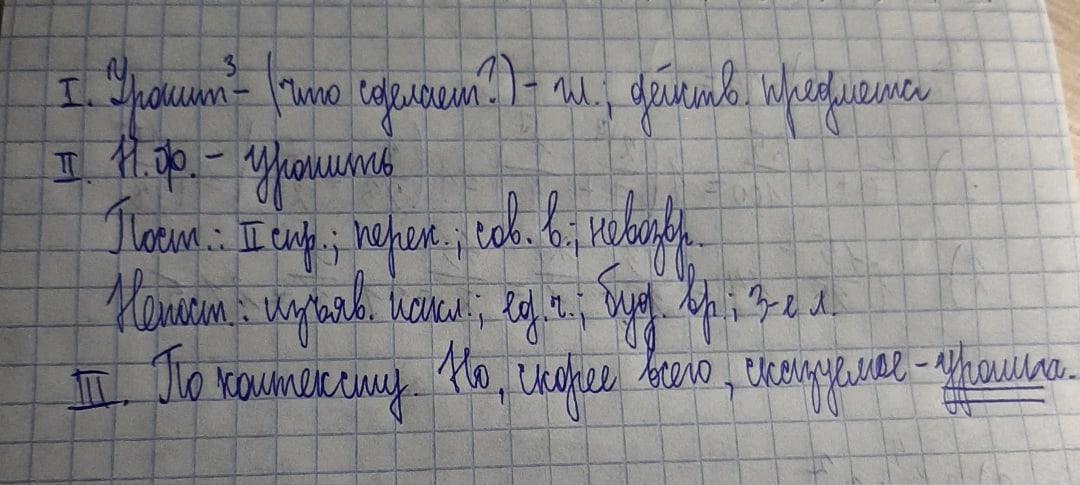 I. Уронит³ - (что сделает?) - гл.; действ. предмета
II. Н.ф. - уронить
Пост.: II спр.; перех.; сов. в.; невозвр.
Непост.: изъяв. накл.; ед. ч.; буд. вр.; 3-е л.
III. По контексту. Но, скорее всего, сказуемое - уронила.